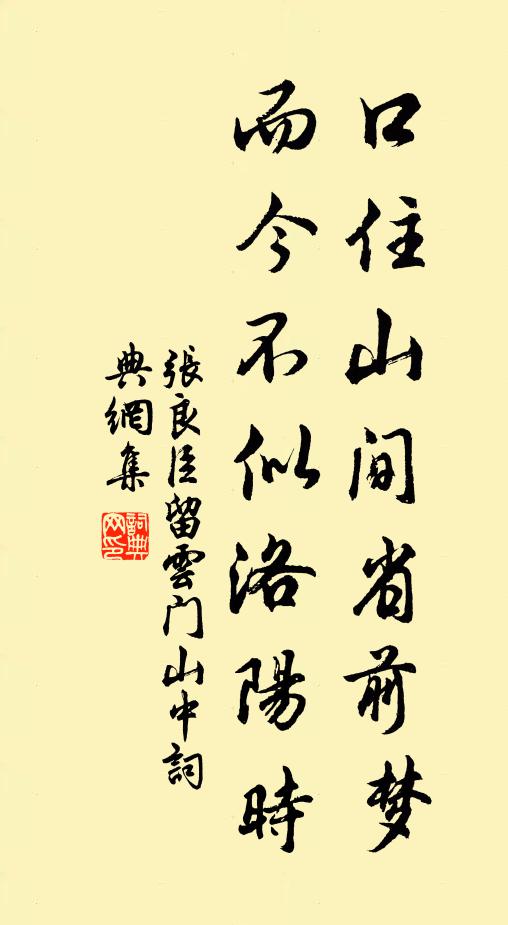 口住山間省前梦
而今不似洛陽時
張良臣留雲门山中詞
典網集
詞典網印